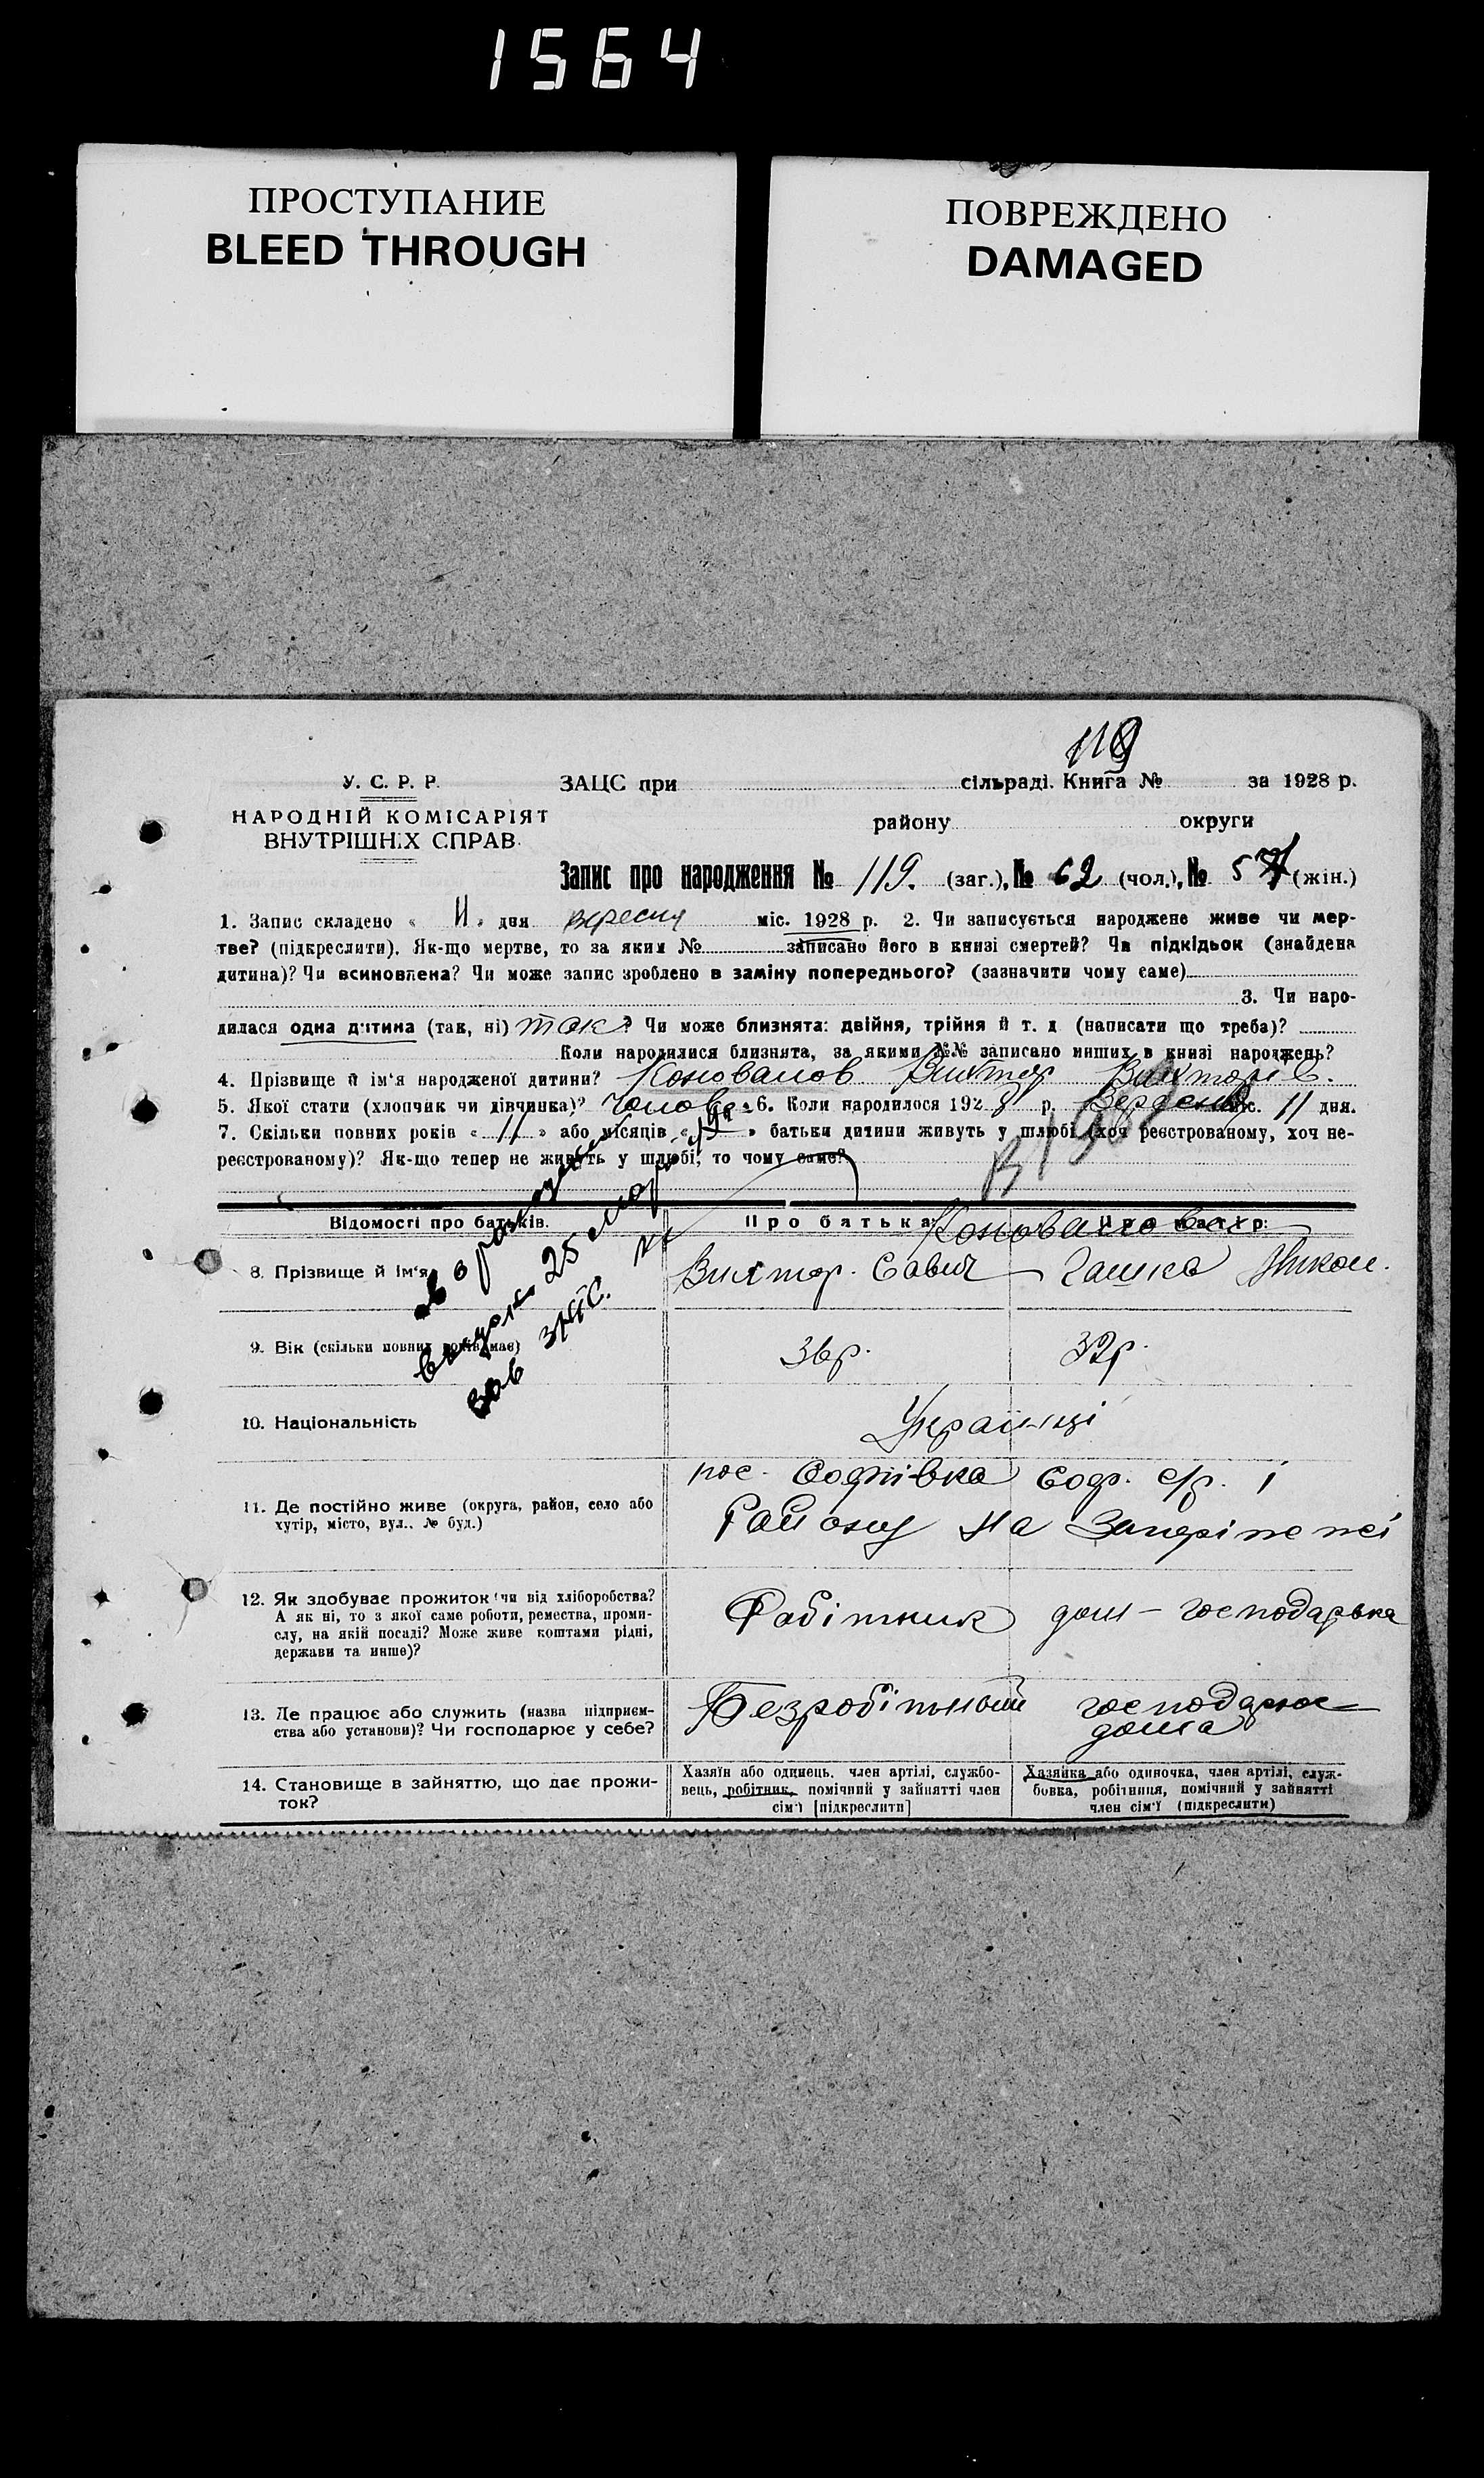 1564
ПРОСТУПАНИЕ
BLEED THROUGH
ПОВРЕЖДЕНО
DAMAGED
119
У. С. Р. Р.
НАРОДНІЙ КОМІСАРІЯТ
ВНУТРІШНІХ СПРАВ.
ЗАЦС при сільраді. Книга № за 1928 р.
району округи
Запис про народження № 119. (заг.), № 62 (чол.), № 57 (жін.)
1. Запис складено « 11 » дня вересня міс. 1928 р. 2. Чи записується народжене живе чи мер-
тве? (підкреслити). Як-що мертве, то за яким № записано його в книзі смертей? Чи підкідьок (знайдена
дитина)? Чи всиновлена? Чи може запис зроблено в заміну попереднього? (зазначити чому саме)
3. Чи наро-
дилася одна дитина (так, ні) так? Чи може близнята: двійня, трійня й т. д. (написати що треба)?
Коли народилися близнята, за якими №№ записано инших в книзі народжень?
4. Прізвище й ім'я народженої дитини? Коновалов Виктор Викторів.
5. Якої стати (хлопчик чи дівчинка)? Чолов. 6. Коли народилося 1928 р. міс. 11 дня.
7. Скільки повних років « 11 » або місяців « » батьки дитини живуть у шлюбі (хоч реєстрованому, хоч не-
реєстрованому)? Як-що тепер не живуть у шлюбі, то чому саме?
Відомості про батьків.
Про батька:
Про матір:
Коновалови
8. Прізвище й ім'я
Виктор. Савич
Гашка Никон.
25
ЗАГС.
9. Вік (скільки повних років має)
36р.
32р.
10. Національність
Українці
11. Де постійно живе (округа, район, село або
хутір, місто, вул., № буд.)
пос. Софіївка Соф. с/р. і
Району на Запоріжжі
12. Як здобуває прожиток чи від хліборобства?
А як ні, то з якої саме роботи, ремества, проми-
слу, на якій посаді? Може живе коштами рідні,
держави та инше)?
Робітник
дом-господарька
13. Де працює або служить (назва підприєм-
ства або установи)? Чи господарює у себе?
Безробітный
господарює
дома
14. Становище в зайняттю, що дає прожи-
ток?
Хазяїн або одинець, член артілі, службо-
вець, робітник, помічний у зайнятті член
сім'ї [підкреслити]
Хазяйка або одиночка, член артілі, служ-
бовка, робітниця, помічний у зайнятті
член сім'ї (підкреслити)